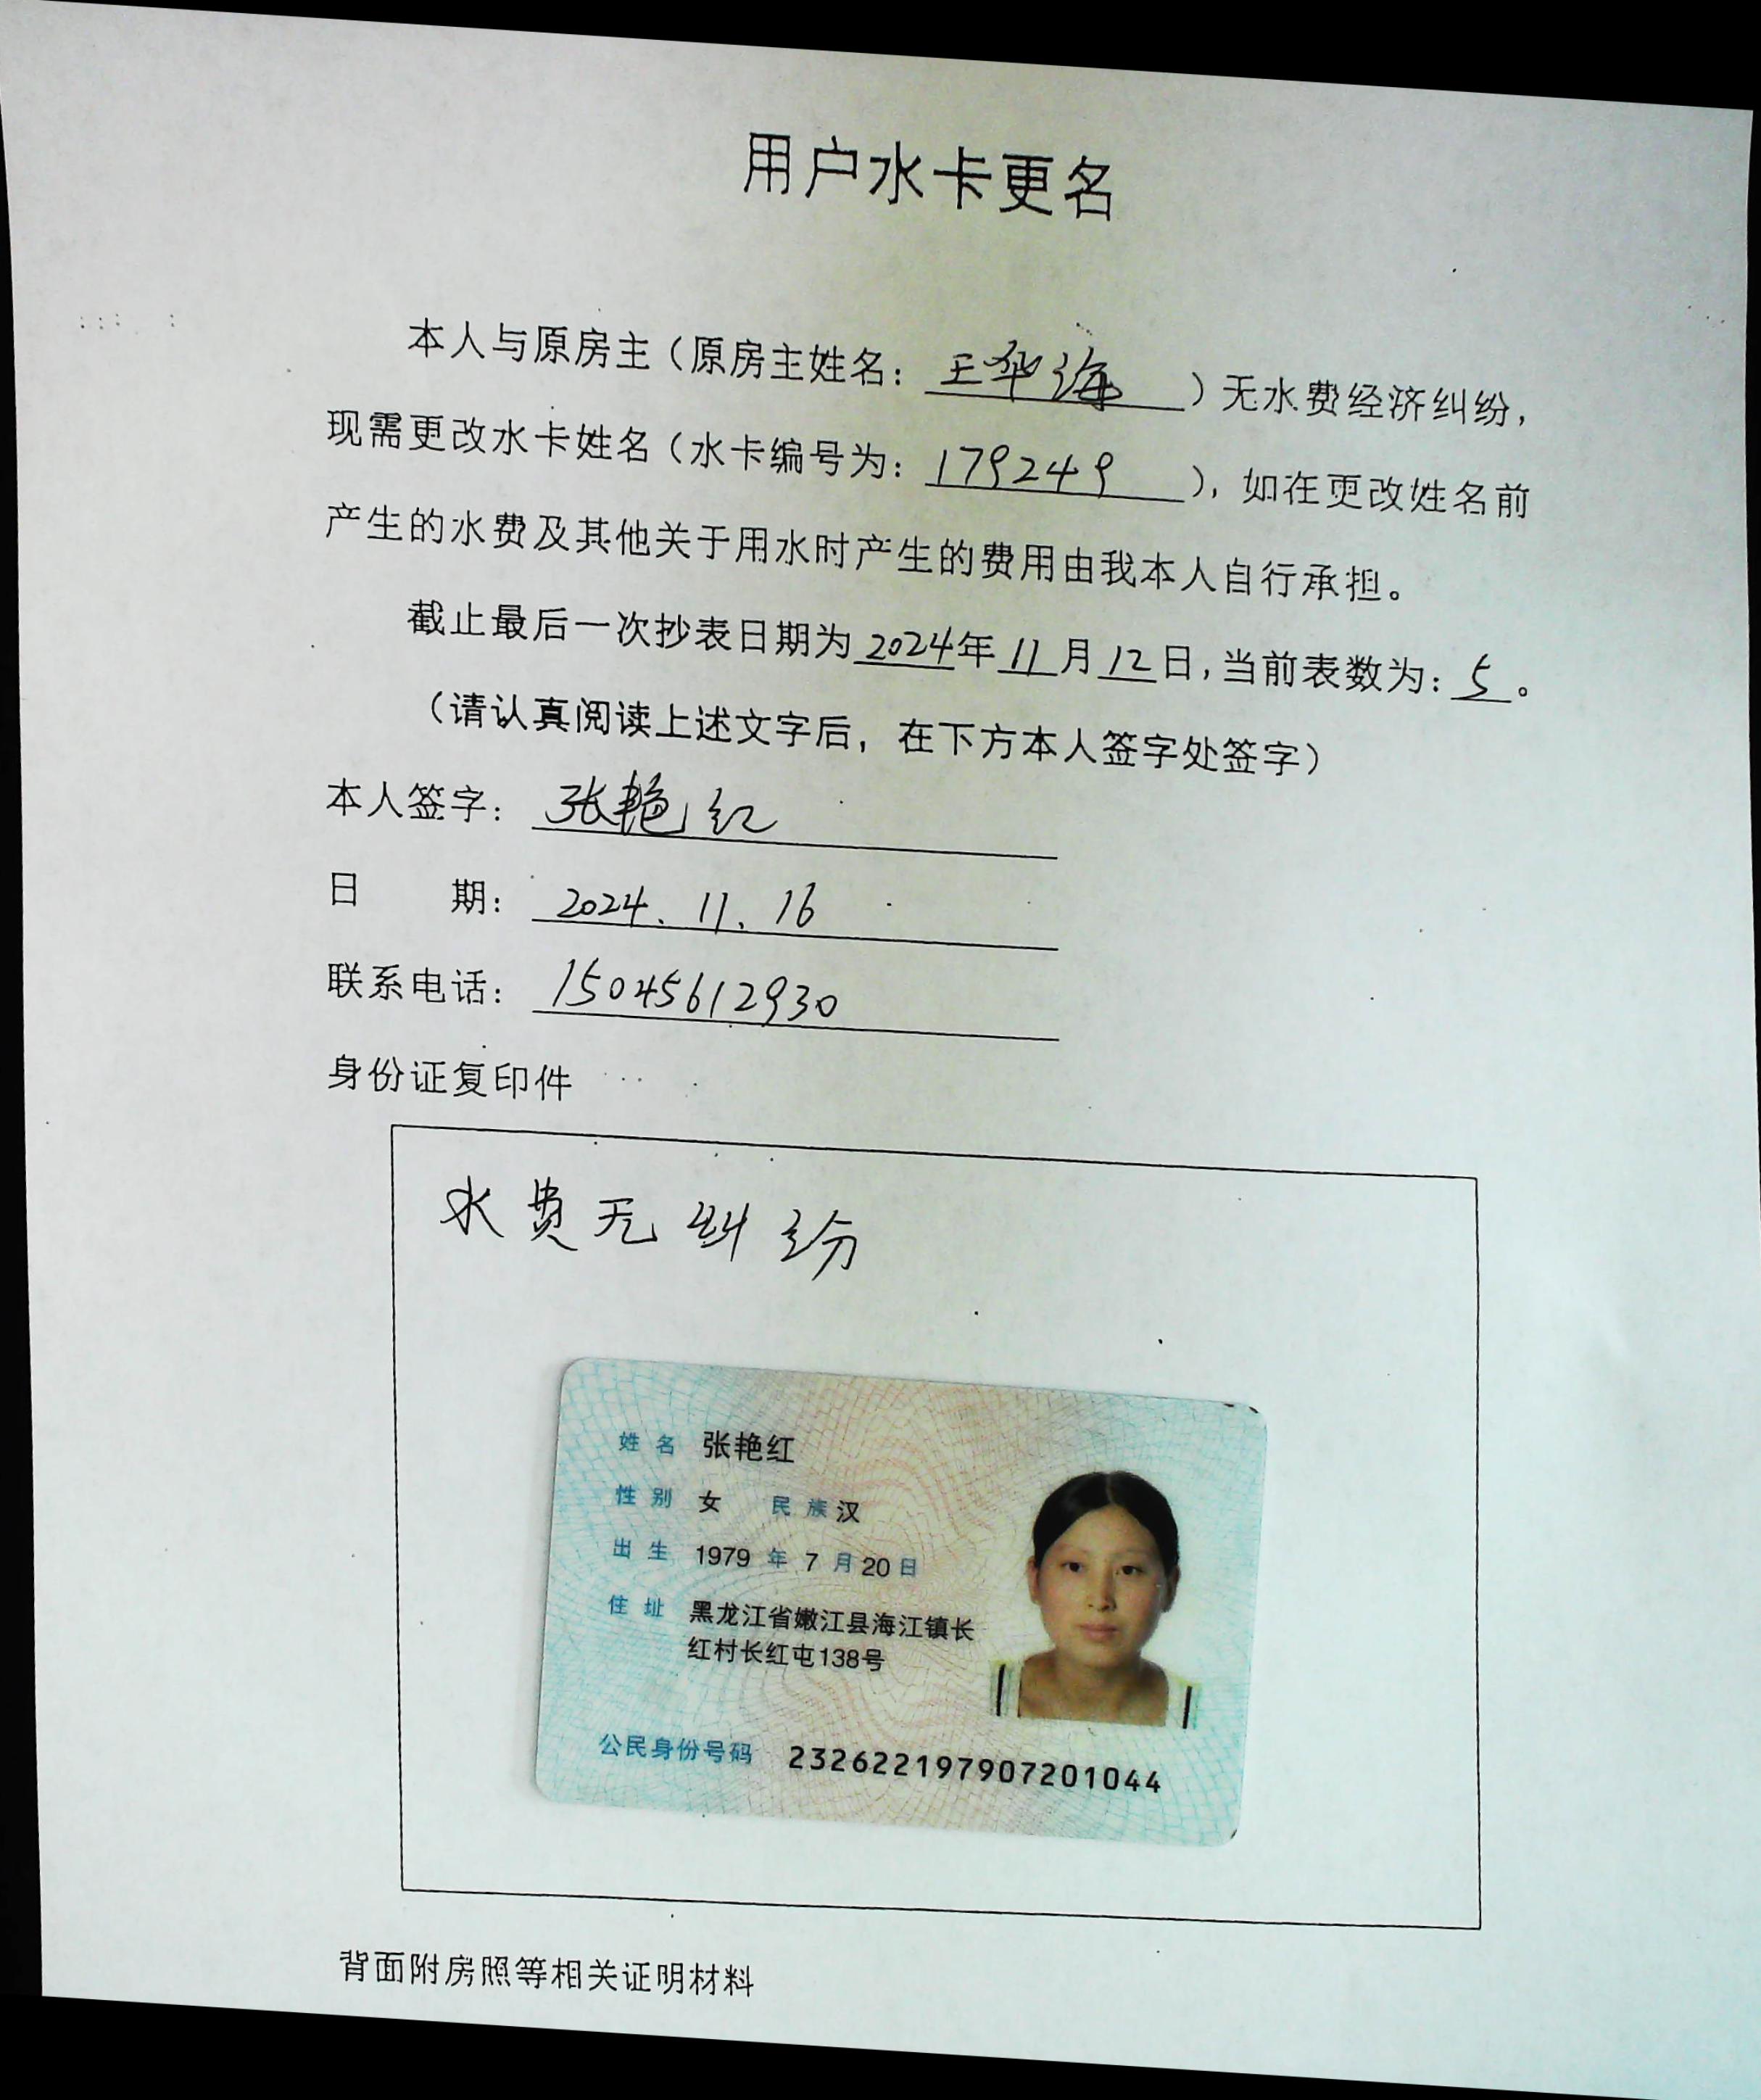 用户水卡更名
本人与原房主（原房主姓名：王华海）无水费经济纠纷，
现需更改水卡姓名（水卡编号为：179249），如在更改姓名前
产生的水费及其他关于用水时产生的费用由我本人自行承担。
截止最后一次抄表日期为2024年11月12日，当前表数为：5。
（请认真阅读上述文字后，在下方本人签字处签字）
本人签字：张艳红
日 期：2024.11.16
联系电话：15045612930
身份证复印件
水费无纠纷
姓名 张艳红
性别 女 民族 汉
出生 1979 年 7 月 20 日
住址 黑龙江省嫩江县海江镇长
红村长红屯138号
公民身份号码 232622197907201044
背面附房照等相关证明材料